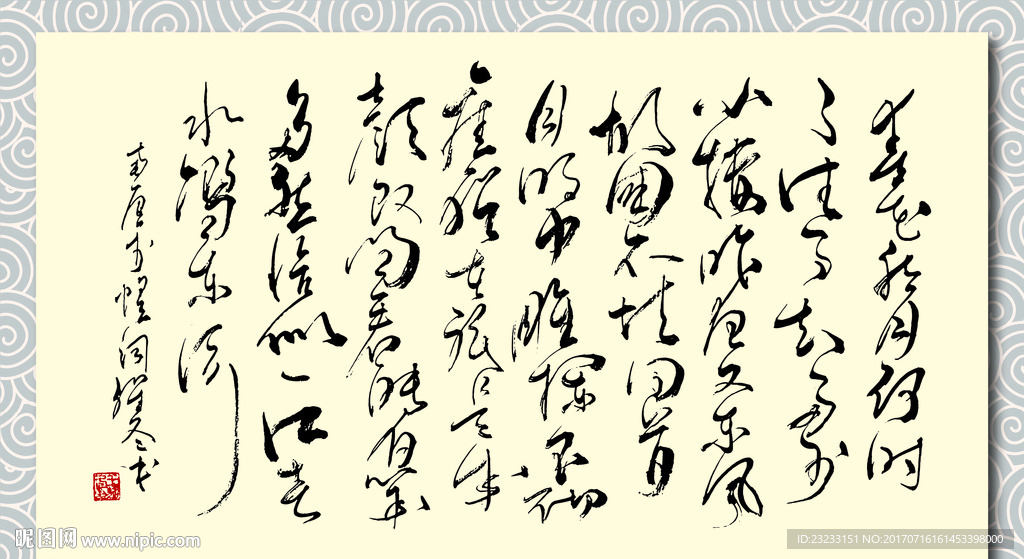 春花秋月何時
了往事知多少
小樓昨夜又東風
故國不堪回首
月明中雕欄玉砌
應猶在祇是朱
顏改問君能有幾
多愁恰似一江春
水向東流
南唐李煜詞 冬書
昵图网 www.nipic.com
ID:23233151 NO:20170716161453398000